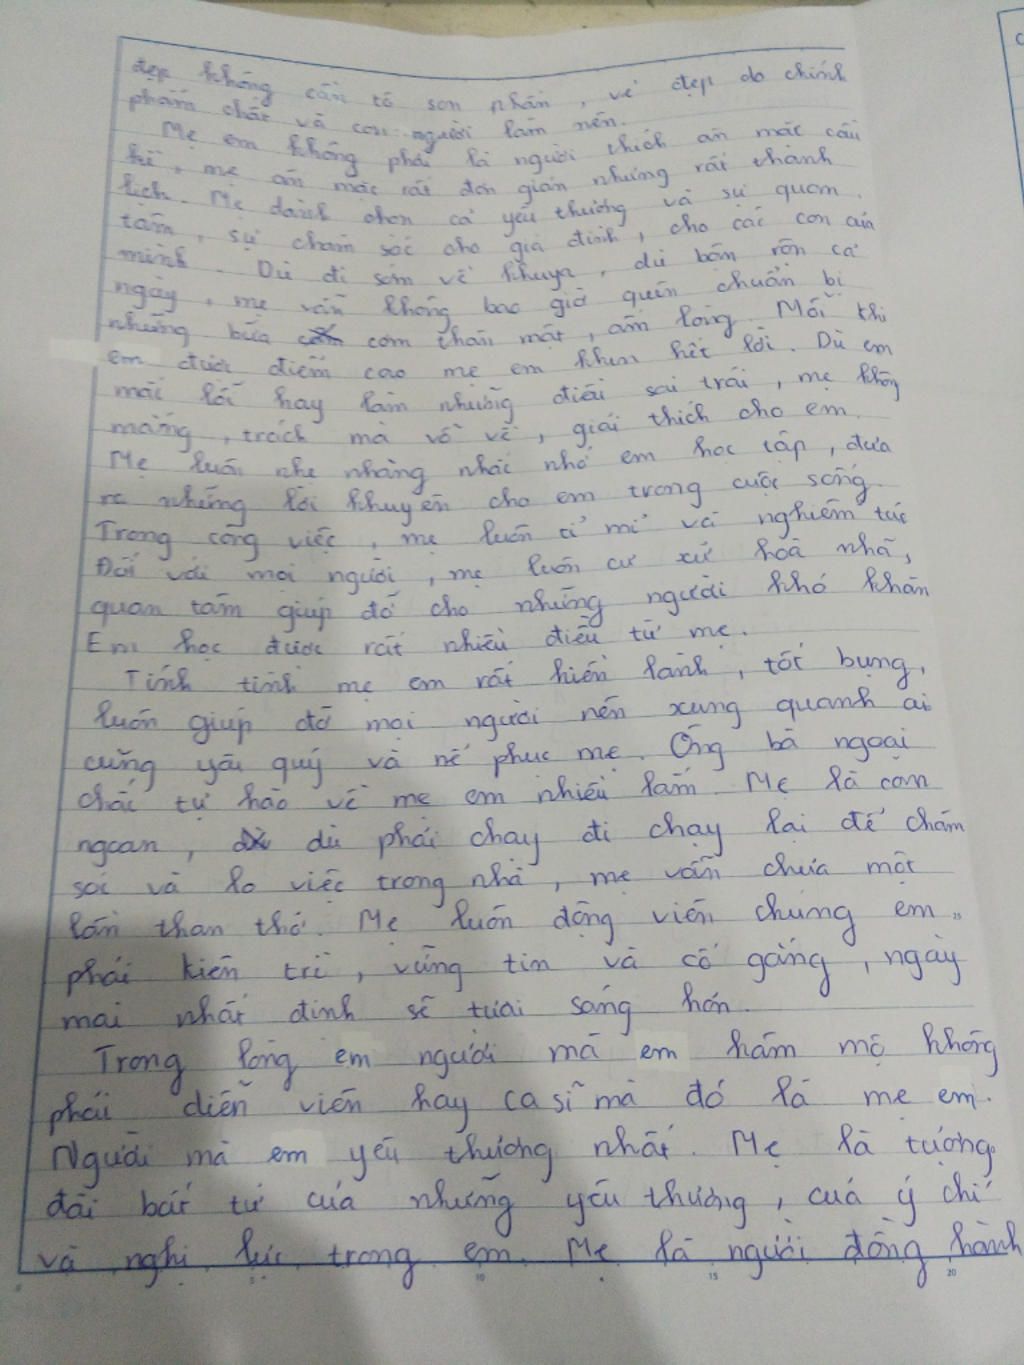 đẹp không cần tô son phấn, vẻ đẹp do chính
phẩm chất và con người làm nên.
Mẹ em không phải là người thích ăn mặc cầu
kì, mẹ ăn mặc rất đơn giản nhưng rất thanh
lịch. Mẹ dành chọn cả yêu thương và sự quan
tâm, sự chăm sóc cho gia đình, cho các con của
mình. Dù đi sớm về khuya, dù bôn rộn cả
ngày, mẹ vẫn không bao giờ quên chuẩn bị
những bữa cơm thân mật, ấm lòng. Mỗi khi
em được điểm cao mẹ em khen hết lời. Dù em
mắc lỗi hay làm những điều sai trái, mẹ không
mắng, trách mà vỗ về, giải thích cho em.
Mẹ luôn nhẹ nhàng nhắc nhở em học tập, đưa
ra những lời khuyên cho em trong cuộc sống.
Trong công việc, mẹ luôn tỉ mỉ và nghiêm túc
Đối với mọi người, mẹ luôn cư xử hoà nhã,
quan tâm giúp đỡ cho những người khó khăn
Em học được rất nhiều điều từ mẹ.
Tính tình mẹ em rất hiền lành, tốt bụng,
luôn giúp đỡ mọi người nên xung quanh ai
cũng yêu quý và nể phục mẹ. Ông bà ngoại
chắc tự hào về mẹ em nhiều lắm. Mẹ là con
ngoan, dù phải chạy đi chạy lại để chăm
sóc và lo việc trong nhà, mẹ vẫn chưa một
lần than thở. Mẹ luôn động viên chúng em
phải kiên trì, vững tin và cố gắng, ngày
mai nhất định sẽ tươi sáng hơn.
Trong lòng em người mà em hâm mộ không
phải diễn viên hay ca sĩ mà đó là mẹ em.
Người mà em yêu thương nhất. Mẹ là tượng
đài bất tử của những yêu thương, của ý chí
và nghị lực trong em. Mẹ là người đồng hành
10 15 20